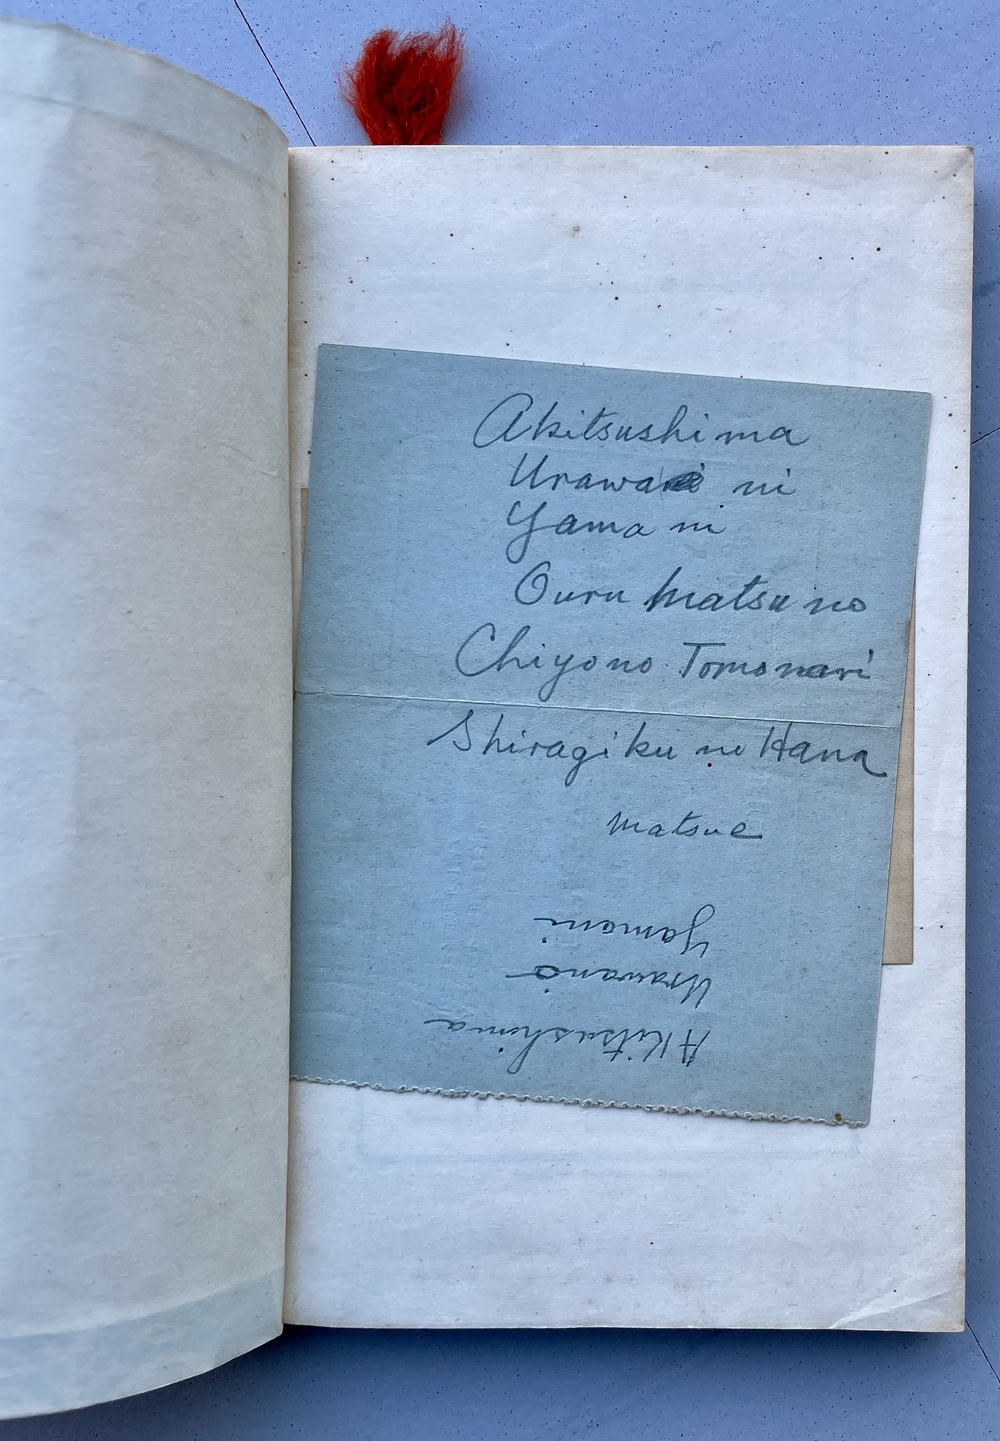 Akitsushima
Urawa ni
Yama ni
Ouru Matsu no
Chiyo no Tomo nari
Shiragiku no Hana
Matsue
Akitsushima
Urawano
Yamani